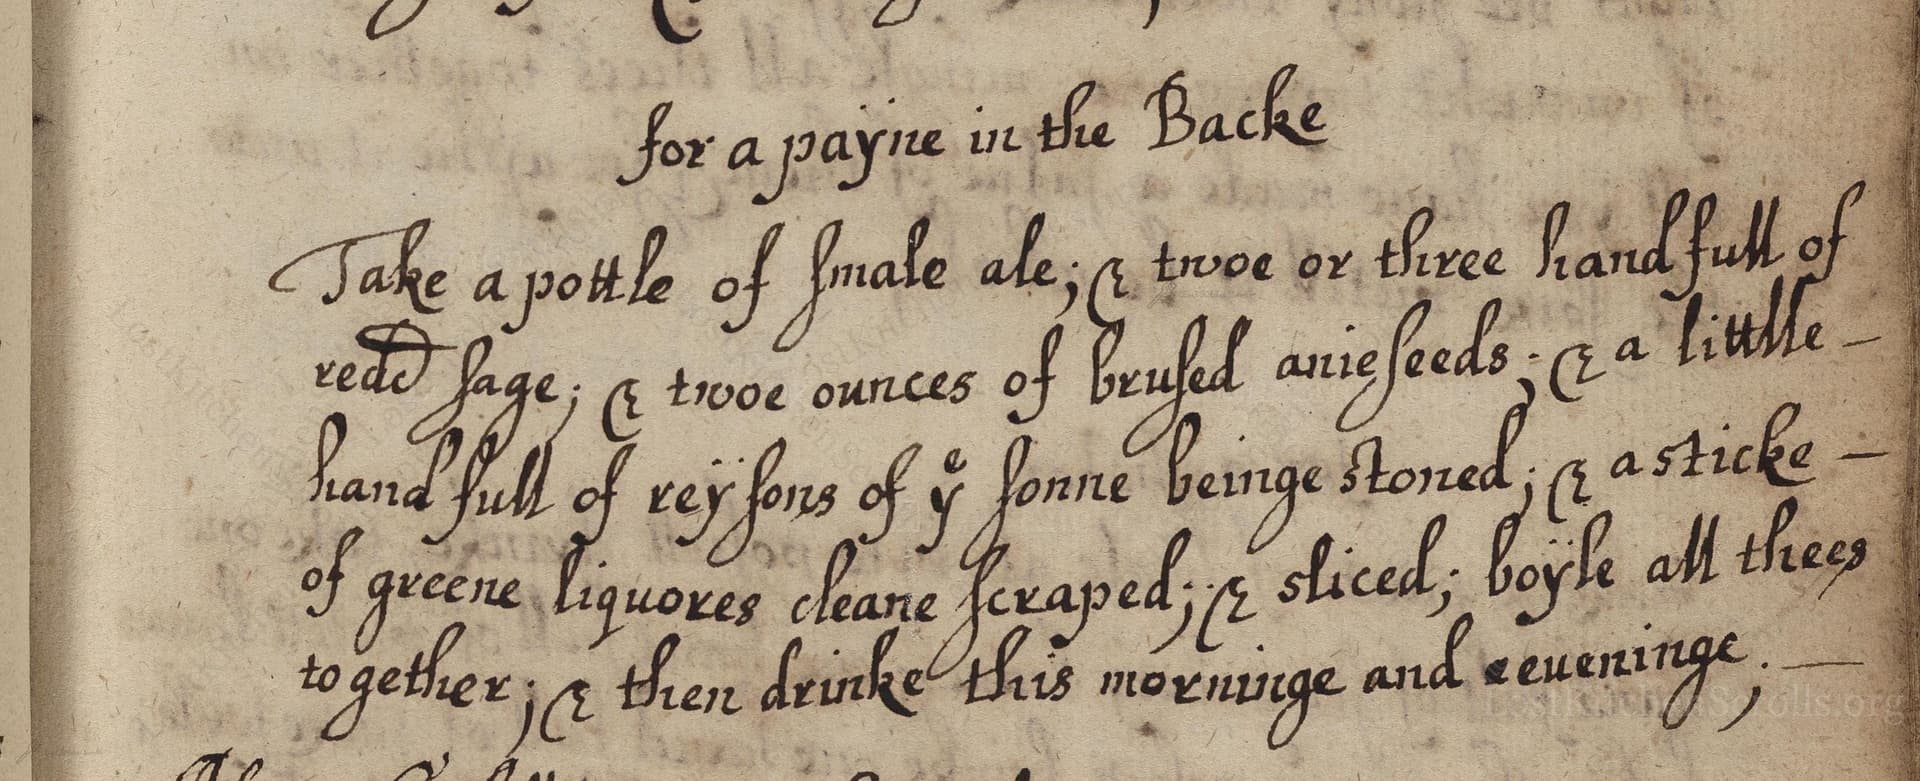 for a paÿne in the Backe
Take a pottle of smale ale; & twoe or three handfull of
redd sage; & twoe ounces of brused anieseeds; & a little –
handfull of reÿsons of yͤ sonne beinge stoned; & a sticke –
of greene liquores cleane scraped; & sliced; boÿle all thees
together; & then drinke this morninge and eeueninge; —